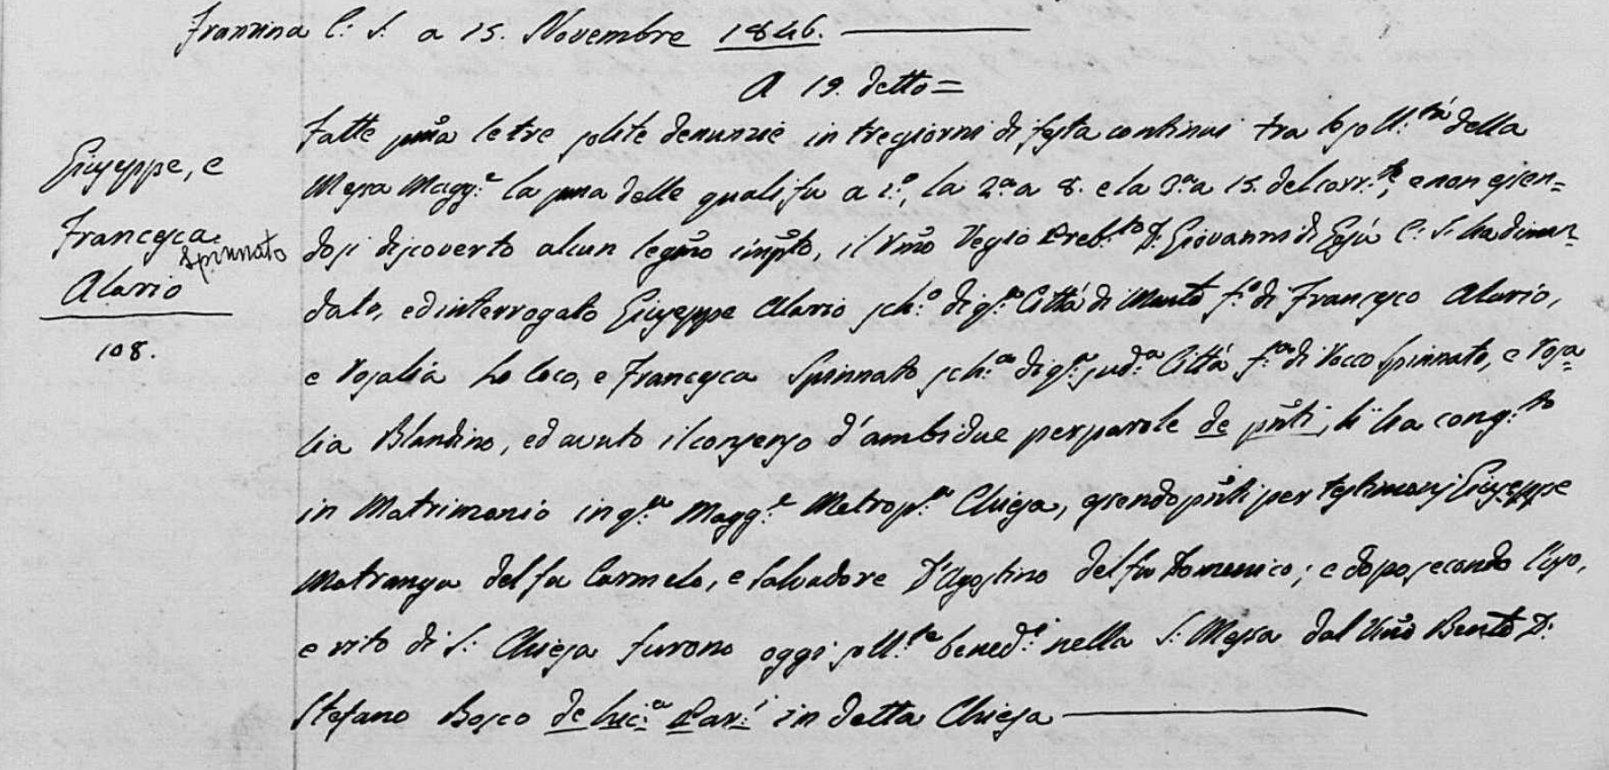 Traxxina C: S: a 15. Novembre 1846.
A 19. detto =
Giuseppe, e
Francesca
Spinnato
Alario
108.
Fatte pma le tre solite denunzie in tre giorni di festa continui tra le soll:tà della
Messa Magg:e la pma delle quali fu a 1:o, la 2:a a 8. e la 3:a a 15. del corr:te, e non essen=
dosi discoverto alcun legmo impto, il Rmo Regio D: Giovanni di C: S: ha diman=
dato, ed interrogato Giuseppe Alario sch:o di q:a Città di f:o di Francesco Alario,
e Rosalia Lo Coco, e Francesca Spinnato sch:a di q:a sud:a Città f:a di Rocco Spinnato, e Rosa=
lia Blandino, ed avuto il consenso d'ambidue per parole de pnti, li ha cong:to
in Matrimonio in q:a Magg:e Metrop:a Chiesa, essendo pnti per testimonj Giuseppe
Matranga del fu Carmelo, e Salvadore D'Agostino del fu Domenico; e dopo secondo l'uso,
e rito di S: Chiesa furono oggi soll:te bened:i nella S: Messa dal Rmo D:
Stefano Bosco de Lic:a Par:i in detta Chiesa